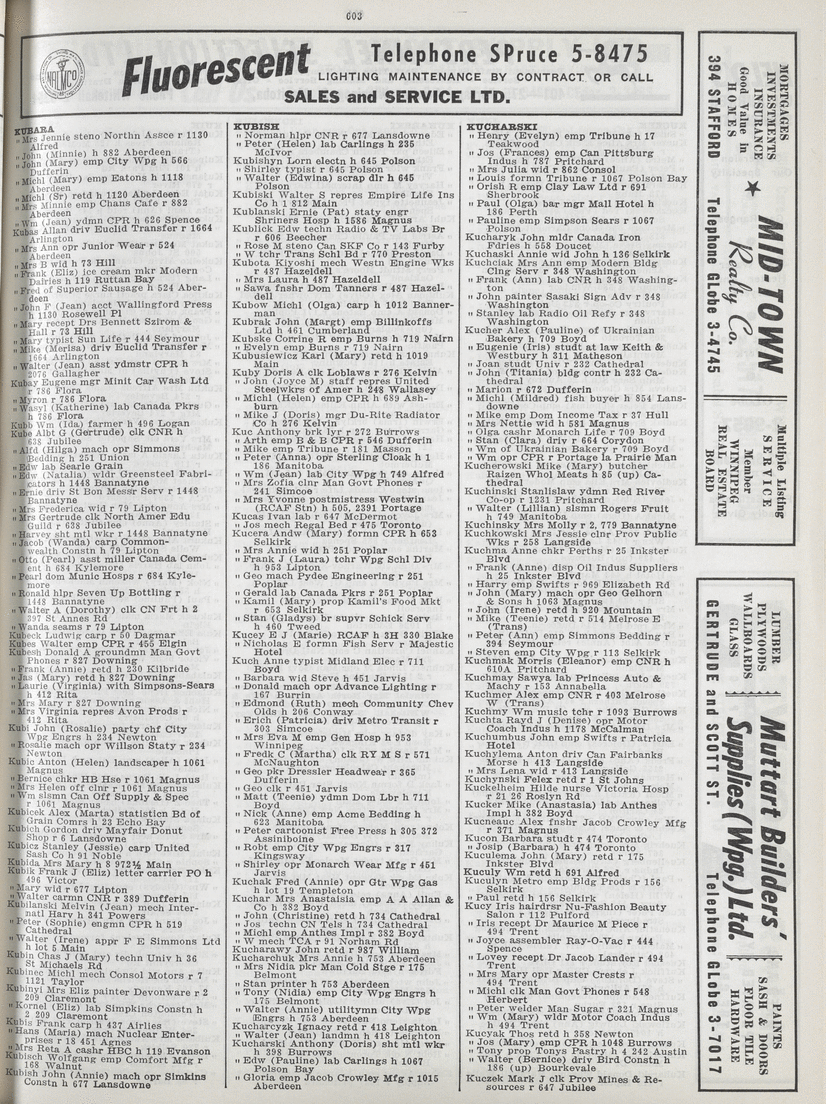 603
NALMCO
Fluorescent
Telephone SPruce 5-8475
LIGHTING MAINTENANCE BY CONTRACT OR CALL
SALES and SERVICE LTD.
KUBARA
" Mrs Jennie steno Northn Assce r 1130
Alfred
" John (Minnie) h 882 Aberdeen
" John (Mary) emp City Wpg h 566
Dufferin
" Michl (Mary) emp Eatons h 1118
Aberdeen
" Michl (Sr) retd h 1120 Aberdeen
" Mrs Minnie emp Chans Cafe r 882
Aberdeen
" Wm (Jean) ydmn CPR h 626 Spence
Kubas Allan driv Euclid Transfer r 1664
Arlington
" Mrs Ann opr Junior Wear r 524
Aberdeen
" Mrs B wid h 73 Hill
" Frank (Eliz) ice cream mkr Modern
Dairies h 119 Ruttan Bay
" Fred of Superior Sausage h 524 Aber-
deen
" John F (Jean) acct Wallingford Press
h 1130 Rosewell Pl
" Mary recept Drs Bennett Szirom &
Hall r 73 Hill
" Mary typist Sun Life r 444 Seymour
" Mike (Merisa) driv Euclid Transfer r
1664 Arlington
" Walter (Jean) asst ydmstr CPR h
2076 Gallagher
Kubay Eugene mgr Minit Car Wash Ltd
r 786 Flora
" Myron r 786 Flora
" Wasyl (Katherine) lab Canada Pkrs
h 786 Flora
Kubb Wm (Ida) farmer h 496 Logan
Kube Albt G (Gertrude) clk CNR h
638 Jubilee
" Alfd (Hilga) mach opr Simmons
Bedding h 251 Union
" Edw lab Searle Grain
" Edw (Natalia) wldr Greensteel Fabri-
cators h 1448 Bannatyne
" Ernie driv St Bon Messr Serv r 1448
Bannatyne
" Mrs Frederica wid r 79 Lipton
" Mrs Gertrude clk North Amer Edu
Guild r 638 Jubilee
" Harvey sht mtl wkr r 1448 Bannatyne
" Jacob (Wanda) carp Common-
wealth Constn h 79 Lipton
" Otto (Pearl) asst miller Canada Cem-
ent h 684 Kylemore
" Pearl dom Munic Hosps r 684 Kyle-
more
" Ronald hlpr Seven Up Bottling r
1448 Bannatyne
" Walter A (Dorothy) clk CN Frt h 2
397 St Annes Rd
" Wanda seams r 79 Lipton
Kubeck Ludwig carp r 50 Dagmar
Kubes Walter emp CPR r 455 Elgin
Kubesh Donald A groundmn Man Govt
Phones r 827 Downing
" Frank (Annie) retd h 230 Kilbride
" Jas (Mary) retd h 827 Downing
" Laurie (Virginia) with Simpsons-Sears
h 412 Rita
" Mrs Mary r 827 Downing
" Mrs Virginia repres Avon Prods r
412 Rita
Kubi John (Rosalie) party chf City
Wpg Engrs h 234 Newton
" Rosalie mach opr Willson Staty r 234
Newton
Kubic Anton (Helen) landscaper h 1061
Magnus
" Bernice chkr HB Hse r 1061 Magnus
" Mrs Helen off clnr r 1061 Magnus
" Wm slsmn Can Off Supply & Spec
r 1061 Magnus
Kubicek Alex (Marta) statistician Bd of
Grain Comrs h 23 Echo Bay
Kubich Gordon driv Mayfair Donut
Shop r 6 Lansdowne
Kubicz Stanley (Jessie) carp United
Sash Co h 91 Noble
Kubida Mrs Mary h 8 972½ Main
Kubik Frank J (Eliz) letter carrier PO h
496 Victor
" Mary wid r 677 Lipton
" Walter carmn CNR r 389 Dufferin
Kubilanski Melvin (Jean) mech Inter-
natl Harv h 341 Powers
" Peter (Sophie) engmn CPR h 519
Cathedral
" Walter (Irene) appr F E Simmons Ltd
h lot 5 Main
Kubin Chas J (Mary) techn Univ h 36
St Michaels Rd
Kubinec Michl mech Consol Motors r 7
1121 Taylor
Kubinyi Mrs Eliz painter Devonware r 2
209 Claremont
" Kornel (Eliz) lab Simpkins Constn h
2 209 Claremont
Kubis Frank carp h 437 Airlies
" Hans (Maria) mach Nuclear Enter-
prises r 18 451 Agnes
" Mrs Reta A cashr HBC h 119 Evanson
Kubisch Wolfgang emp Comfort Mfg r
168 Walnut
Kubish John (Annie) mach opr Simkins
Constn h 677 Lansdowne
KUBISH
" Norman hlpr CNR r 677 Lansdowne
" Peter (Helen) lab Carlings h 235
McIvor
Kubishyn Lorn electn h 645 Polson
" Shirley typist r 645 Polson
" Walter (Edwina) scrap dlr h 645
Polson
Kubiski Walter S repres Empire Life Ins
Co h 1 812 Main
Kublanski Ernie (Pat) staty engr
Shriners Hosp h 1586 Magnus
Kublick Edw techn Radio & TV Labs Br
r 606 Beecher
" Rose M steno Can SKF Co r 143 Furby
" W tchr Trans Schl Bd r 770 Preston
Kubota Kiyoshi mech Westn Engine Wks
r 487 Hazeldell
" Mrs Laura h 487 Hazeldell
" Sawa fnshr Dom Tanners r 487 Hazel-
dell
Kubow Michl (Olga) carp h 1012 Banner-
man
Kubrak John (Margt) emp Billinkoffs
Ltd h 461 Cumberland
Kubske Corrine R emp Burns h 719 Nairn
" Evelyn emp Burns r 719 Nairn
Kubusiewicz Karl (Mary) retd h 1019
Main
Kuby Doris A clk Loblaws r 276 Kelvin
" John (Joyce M) staff repres United
Steelwkrs of Amer h 248 Wallasey
" Michl (Helen) emp CPR h 689 Ash-
burn
" Mike J (Doris) mgr Du-Rite Radiator
Co h 276 Kelvin
Kuc Anthony brk lyr r 272 Burrows
" Arth emp B & B CPR r 546 Dufferin
" Mike emp Tribune r 181 Masson
" Peter (Anna) opr Sterling Cloak h 1
186 Manitoba
" Wm (Jean) lab City Wpg h 749 Alfred
" Mrs Zofia clnr Man Govt Phones r
241 Simcoe
" Mrs Yvonne postmistress Westwin
(RCAF Stn) h 505, 2391 Portage
Kucas Ivan lab r 647 McDermot
" Jos mech Regal Bed r 475 Toronto
Kucera Andw (Mary) formn CPR h 653
Selkirk
" Mrs Annie wid h 251 Poplar
" Frank J (Laura) tchr Wpg Schl Div
h 953 Lipton
" Geo mach Pydee Engineering r 251
Poplar
" Gerald lab Canada Pkrs r 251 Poplar
" Kamil (Mary) prop Kamil's Food Mkt
r 653 Selkirk
" Stan (Gladys) br supvr Schick Serv
h 460 Tweed
Kucey E J (Marie) RCAF h 3H 330 Blake
" Nicholas E formn Fish Serv r Majestic
Hotel
Kuch Anne typist Midland Elec r 711
Boyd
" Barbara wid Steve h 451 Jarvis
" Donald mach opr Advance Lighting r
167 Burrin
" Edmond (Ruth) mech Community Chev
Olds h 206 Conway
" Erich (Patricia) driv Metro Transit r
303 Simcoe
" Mrs Eva M emp Gen Hosp h 953
Winnipeg
" Fredk C (Martha) clk RY M S r 571
McNaughton
" Geo pkr Dressler Headwear r 365
Dufferin
" Geo clk r 451 Jarvis
" Matt (Teenie) ydmn Dom Lbr h 711
Boyd
" Nick (Anne) emp Acme Bedding h
623 Manitoba
" Peter cartoonist Free Press h 305 372
Assiniboine
" Robt emp City Wpg Engrs h 317
Kingsway
" Shirley opr Monarch Wear Mfg r 451
Jarvis
Kuchak Fred (Annie) opr Gtr Wpg Gas
h lot 19 Templeton
Kuchar Mrs Anastaisia emp A A Allan &
Co h 382 Boyd
" John (Christine) retd h 734 Cathedral
" Jos techn CN Tels h 734 Cathedral
" Michl emp Anthes Impl r 382 Boyd
" W mech TCA r 91 Norham Rd
Kucharawy John retd r 987 William
Kucharchuk Mrs Annie h 753 Aberdeen
" Mrs Nidia pkr Man Cold Stge r 175
Belmont
" Stan printer h 753 Aberdeen
" Tony (Nidia) emp City Wpg Engrs h
175 Belmont
" Walter (Annie) utilitymn City Wpg
Engrs h 753 Aberdeen
Kucharcyzk Ignacy retd r 418 Leighton
" Walter (Jean) landmn h 418 Leighton
Kucharski Anthony (Doris) sht mtl wkr
h 398 Burrows
" Edw (Pauline) lab Carlings h 1067
Polson Bay
" Gloria emp Jacob Crowley Mfg r 1015
Aberdeen
KUCHARSKI
" Henry (Evelyn) emp Tribune h 17
Teakwood
" Jos (Frances) emp Can Pittsburg
Indus h 787 Pritchard
" Mrs Julia wid r 862 Consol
" Louis formn Tribune r 1067 Polson Bay
" Orish R emp Clay Law Ltd r 691
Sherbrook
" Paul (Olga) bar mgr Mall Hotel h
186 Perth
" Pauline emp Simpson Sears r 1067
Polson
Kucharyk John mldr Canada Iron
Fdries h 558 Doucet
Kuchaski Annie wid John h 136 Selkirk
Kuchciak Mrs Ann emp Modern Bldg
Clng Serv r 348 Washington
" Frank (Ann) lab CNR h 348 Washing-
ton
" John painter Sasaki Sign Adv r 348
Washington
" Stanley lab Radio Oil Refy r 348
Washington
Kucher Alex (Pauline) of Ukrainian
Bakery h 709 Boyd
" Eugenie (Iris) studt at law Keith &
Westbury h 311 Matheson
" Joan studt Univ r 232 Cathedral
" John (Titania) bldg contr h 232 Ca-
thedral
" Marion r 672 Dufferin
" Michl (Mildred) fish buyer h 854 Lans-
downe
" Mike emp Dom Income Tax r 37 Hull
" Mrs Nettie wid h 581 Magnus
" Olga cashr Monarch Life r 709 Boyd
" Stan (Clara) driv r 664 Corydon
" Wm of Ukrainian Bakery r 709 Boyd
" Wm opr CPR r Portage la Prairie Man
Kucherowski Mike (Mary) butcher
Raizen Whol Meats h 85 (up) Ca-
thedral
Kuchinski Stanislaw ydmn Red River
Co-op r 1231 Pritchard
" Walter (Lillian) slsmn Rogers Fruit
h 749 Manitoba
Kuchinsky Mrs Molly r 2, 779 Bannatyne
Kuchkowski Mrs Jessie clnr Prov Public
Wks r 258 Langside
Kuchma Anne chkr Perths r 25 Inkster
Blvd
" Frank (Anne) disp Oil Indus Suppliers
h 25 Inkster Blvd
" Harry emp Swifts r 969 Elizabeth Rd
" John (Mary) mach opr Geo Gelhorn
& Sons h 1063 Magnus
" John (Irene) retd h 920 Mountain
" Mike (Teenie) retd r 514 Melrose E
(Trans)
" Peter (Ann) emp Simmons Bedding r
394 Seymour
" Steven emp City Wpg r 113 Selkirk
Kuchmak Morris (Eleanor) emp CNR h
610A Pritchard
Kuchmay Sawya lab Princess Auto &
Machy r 153 Annabella
Kuchmer Alex emp CNR r 403 Melrose
W (Trans)
Kuchmy Wm music tchr r 1093 Burrows
Kuchta Rayd J (Denise) opr Motor
Coach Indus h 1178 McCalman
Kuchumbus John emp Swifts r Patricia
Hotel
Kuchylema Anton driv Can Fairbanks
Morse h 413 Langside
" Mrs Lena wid r 413 Langside
Kuchynski Felex retd r 1 St Johns
Kuckelheim Hilde nurse Victoria Hosp
r 21 26 Roslyn Rd
Kucker Mike (Anastasia) lab Anthes
Impl h 382 Boyd
Kucneauc Alex fnshr Jacob Crowley Mfg
r 371 Magnus
Kucon Barbara studt r 474 Toronto
" Josip (Barbara) h 474 Toronto
Kuculema John (Mary) retd r 175
Inkster Blvd
Kuculy Wm retd h 691 Alfred
Kuculyn Metro emp Bldg Prods r 156
Selkirk
" Paul retd h 156 Selkirk
Kucy Iris hairdrsr Nu-Fashion Beauty
Salon r 112 Pulford
" Iris recept Dr Maurice M Piece r
494 Trent
" Joyce assembler Ray-O-Vac r 444
Spence
" Lovey recept Dr Jacob Lander r 494
Trent
" Mrs Mary opr Master Crests r
494 Trent
" Michl clk Man Govt Phones r 548
Herbert
" Peter welder Man Sugar r 321 Magnus
" Wm (Mary) wldr Motor Coach Indus
h 494 Trent
Kucyak Thos retd h 358 Newton
" Jos (Mary) emp CPR h 1048 Burrows
" Tony prop Tonys Pastry h 4 242 Austin
" Walter (Bernice) driv Bird Constn h
186 (up) Bourkevale
Kuczek Mark J clk Prov Mines & Re-
sources r 647 Jubilee
MORTGAGES
INVESTMENTS
INSURANCE
Good Value in
HOMES
394 STAFFORD
★
MID-TOWN
Realty Co.
Telephone GLobe 3-4745
Multiple Listing
SERVICE
Member
WINNIPEG
REAL ESTATE
BOARD
LUMBER
PLYWOODS
WALLBOARDS
GLASS
GERTRUDE and SCOTT ST.
Muttart Builders'
Supplies (Wpg.) Ltd.
Telephone GLobe 3-7017
PAINTS
SASH & DOORS
FLOOR TILE
HARDWARE